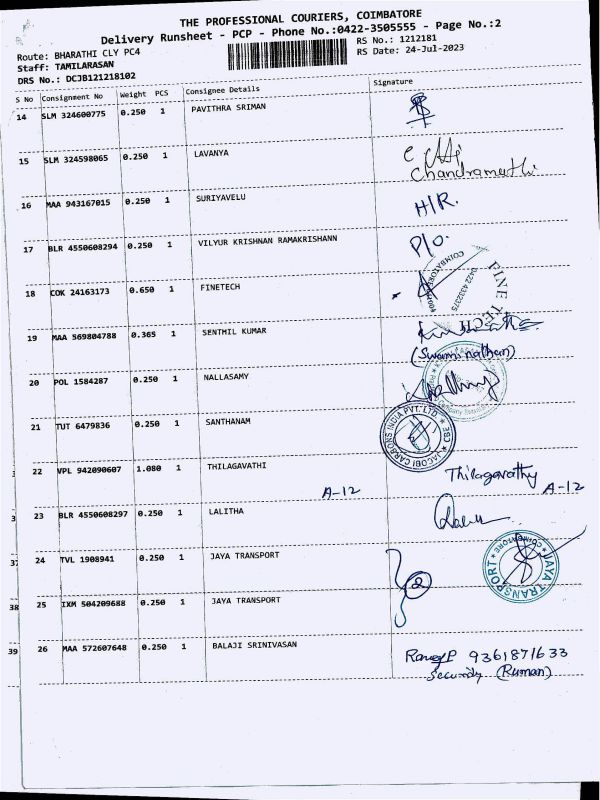 THE PROFESSIONAL COURIERS, COIMBATORE
Delivery Runsheet - PCP - Phone No.:0422-3505555 - Page No.:2
Route: BHARATHI CLY PC4
RS No.: 1212181
Staff: TAMILARASAN
RS Date: 24-Jul-2023
DRS No.: DCJB121218102
S No Consignment No Weight PCS Consignee Details Signature
14 SLM 324600775 0.250 1 PAVITHRA SRIMAN
15 SLM 324598065 0.250 1 LAVANYA
Chandramathi
16 MAA 943167015 0.250 1 SURIYAVELU H/R.
17 BLR 4550608294 0.250 1 VILYUR KRISHNAN RAMAKRISHANN P/O.
18 COK 24163173 0.650 1 FINETECH
COIMBATORE
0422
FINE TECH
19 MAA 569804788 0.365 1 SENTHIL KUMAR
(Swaminathan)
20 POL 1584287 0.250 1 NALLASAMY
21 TUT 6479836 0.250 1 SANTHANAM
JACOBI CARBONS INDIA PVT. LTD. CBE
22 VPL 942090607 1.080 1 THILAGAVATHI Thilagavathy
A-12 A-12
23 BLR 4550608297 0.250 1 LALITHA
37 24 TVL 1908941 0.250 1 JAYA TRANSPORT
2
JAYA TRANSPORT COIMBATORE
38 25 IXM 504209688 0.250 1 JAYA TRANSPORT
39 26 MAA 572607648 0.250 1 BALAJI SRINIVASAN
9361871633
Security (Ruman)